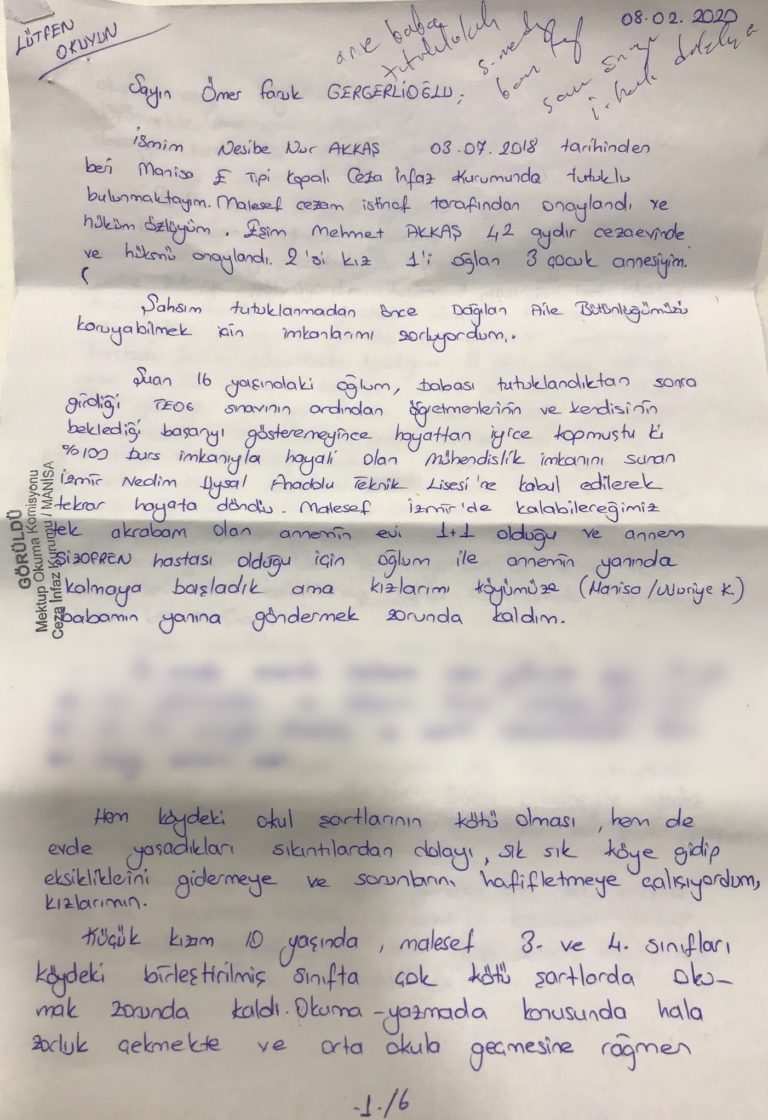 LÜTFEN
OKUYUN
08.02.2020
anne baba
Sayın Ömer Faruk GERGERLİOĞLU;
İsmim Nesibe Nur AKKAŞ 03.07.2018 tarihinden
beri Manisa E Tipi Kapalı Ceza İnfaz Kurumunda tutuklu
bulunmaktayım. Malesef cezam istinaf tarafından onaylandı ve
hüküm özlüyüm. Eşim Mehmet AKKAŞ 42 aydır cezaevinde
ve hükmü onaylandı. 2'si kız 1'i oğlan 3 çocuk annesiyim.
Şahsım tutuklanmadan önce Dağılan Aile Bütünlüğümüzü
koruyabilmek için imkanlarımı zorluyordum.
Şuan 16 yaşındaki oğlum, babası tutuklandıktan sonra
girdiği TEOG sınavının ardından öğretmenlerinin ve kendisinin
beklediği başarıyı gösteremeyince hayattan iyice kopmuştu ki
%100 burs imkanıyla hayali olan Mühendislik imkanını sunan
İzmir Nedim Uysal Anadolu Teknik Lisesi'ne kabul edilerek
tekrar hayata döndü. Malesef İzmir'de kalabileceğimiz
tek akrabam olan annemin evi 1+1 olduğu ve annem
ŞİZOFREN hastası olduğu için oğlum ile annemin yanında
kalmaya başladık ama kızlarımı köyümüze (Manisa /Nuriye K.)
babamın yanına göndermek zorunda kaldım.
GÖRÜLDÜ
Mektup Okuma Komisyonu
Ceza İnfaz Kurumu / MANİSA
Hem köydeki okul şartlarının kötü olması, hem de
evde yaşadıkları sıkıntılardan dolayı, sık sık köye gidip
eksikliklerini gidermeye ve sorunlarını hafifletmeye çalışıyordum,
kızlarımın.
Küçük kızım 10 yaşında, malesef 3. ve 4. sınıfları
köydeki birleştirilmiş sınıfta çok kötü şartlarda oku-
mak zorunda kaldı. Okuma-yazmada konusunda hala
zorluk çekmekte ve orta okula geçmesine rağmen
-1-/6